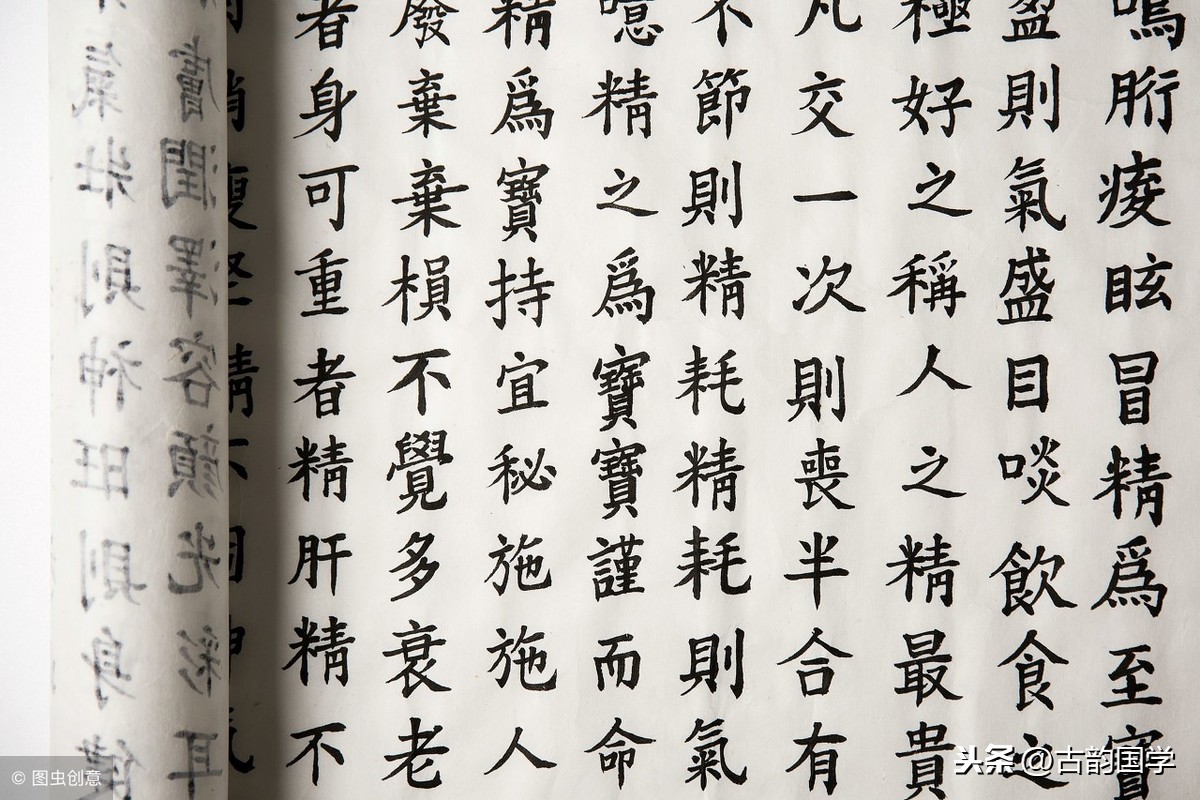 鳴胻痠眩冒精爲至寶
盈則氣盛目啖飲食之
極好之稱人之精最貴
凡交一次則喪半合有
不節則精耗精耗則氣
噫精之爲寶寶謹而命
精爲寶持宜秘施施人
廢棄棄損不覺多衰老
者身可重者精肝精不
膚潤澤容顏光彩耳
氣壯則神旺則身健
© 图虫创意
头条 @古韵国学